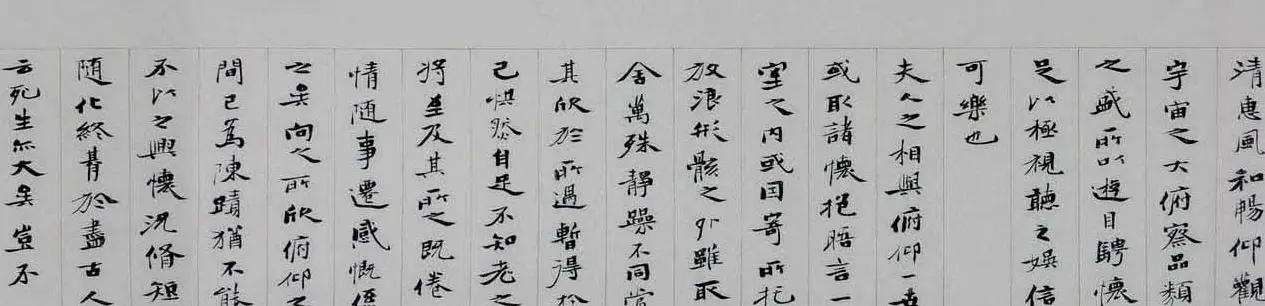 清惠風和暢仰觀
宇宙之大俯察品類
之盛所以遊目騁懷
足以極視聽之娛信
可樂也
夫人之相與俯仰一世
或取諸懷抱晤言一
室之內或因寄所托
放浪形骸之外雖取
舍萬殊靜躁不同當
其欣於所遇暫得於
己怏然自足不知老之
將至及其所之既倦
情隨事遷感慨係
之矣向之所欣俯仰之
間已為陳蹟猶不能
不以之興懷況脩短
隨化終期於盡古人
云死生亦大矣豈不